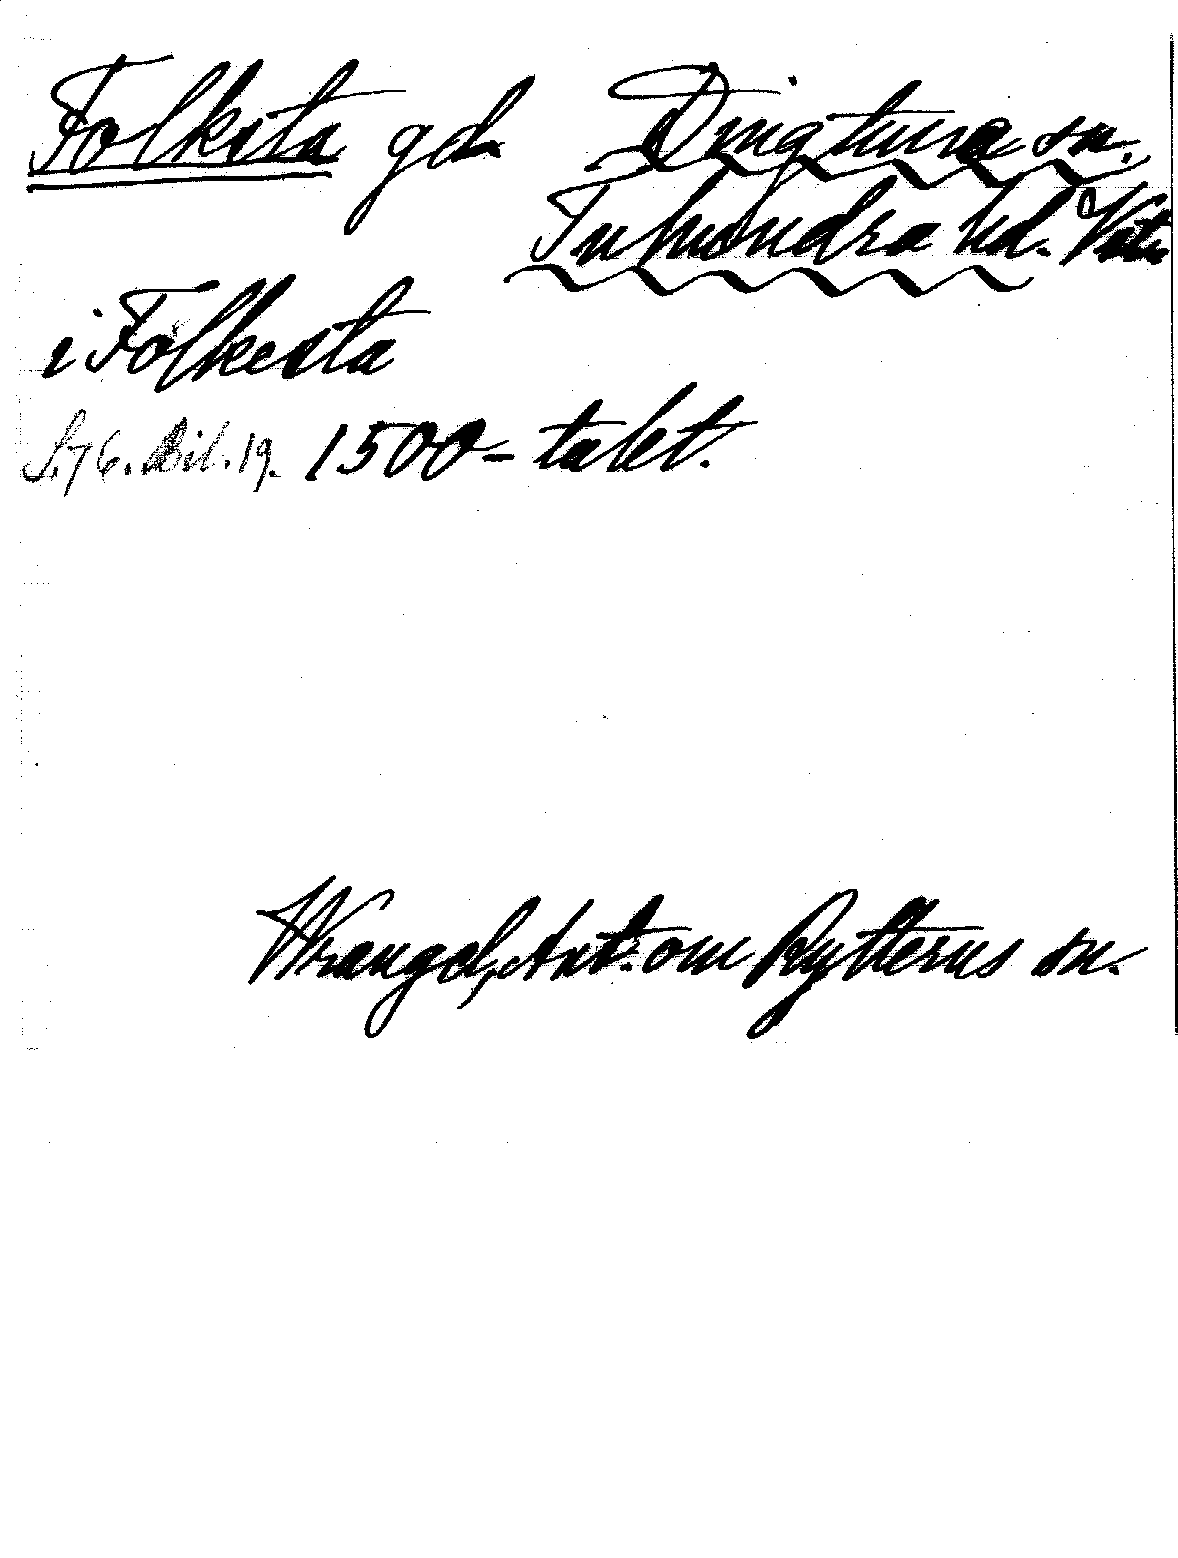 Folksta gd. Dingtuna sn.
Tuhundra hd. Vstm
i Folkesta
S. 76. Bil. 19. 1500-talet.
Wrangel, Ant. om Rytterns sn.